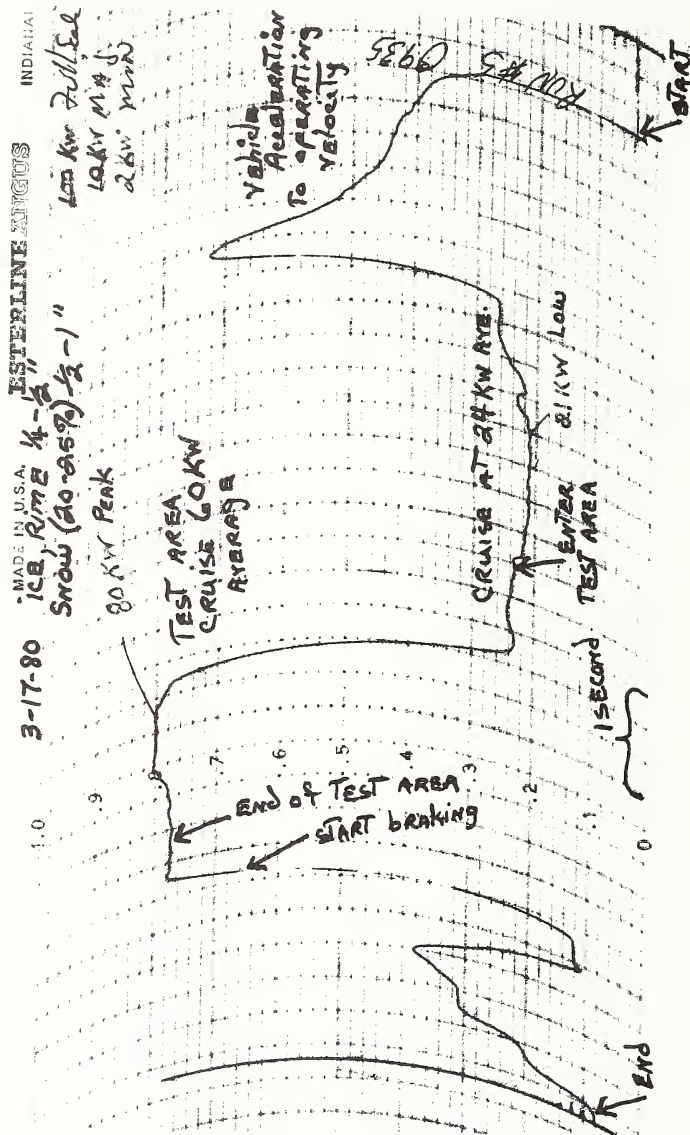 3-17-80
MADE IN U.S.A.
ESTERLINE ANGUS
INDIANA
ICE, RIME 1/4-1/2"
SNOW (20-25%) 1/2-1"
100 KW Full Scal
10 KW MAJ
2 KW MIN
80 KW PEAK
TEST AREA
CRUISE 60 KW
AVERAGE
Vehicle
Acceleration
To operating
Velocity
@935
RUN #5
START
CRUISE AT 24 KW AVE.
21 KW LOW
ENTER
TEST AREA
1 Second
End of TEST AREA
START braking
END
1.0
.9
.8
.7
.6
.5
.4
.3
.2
.1
0